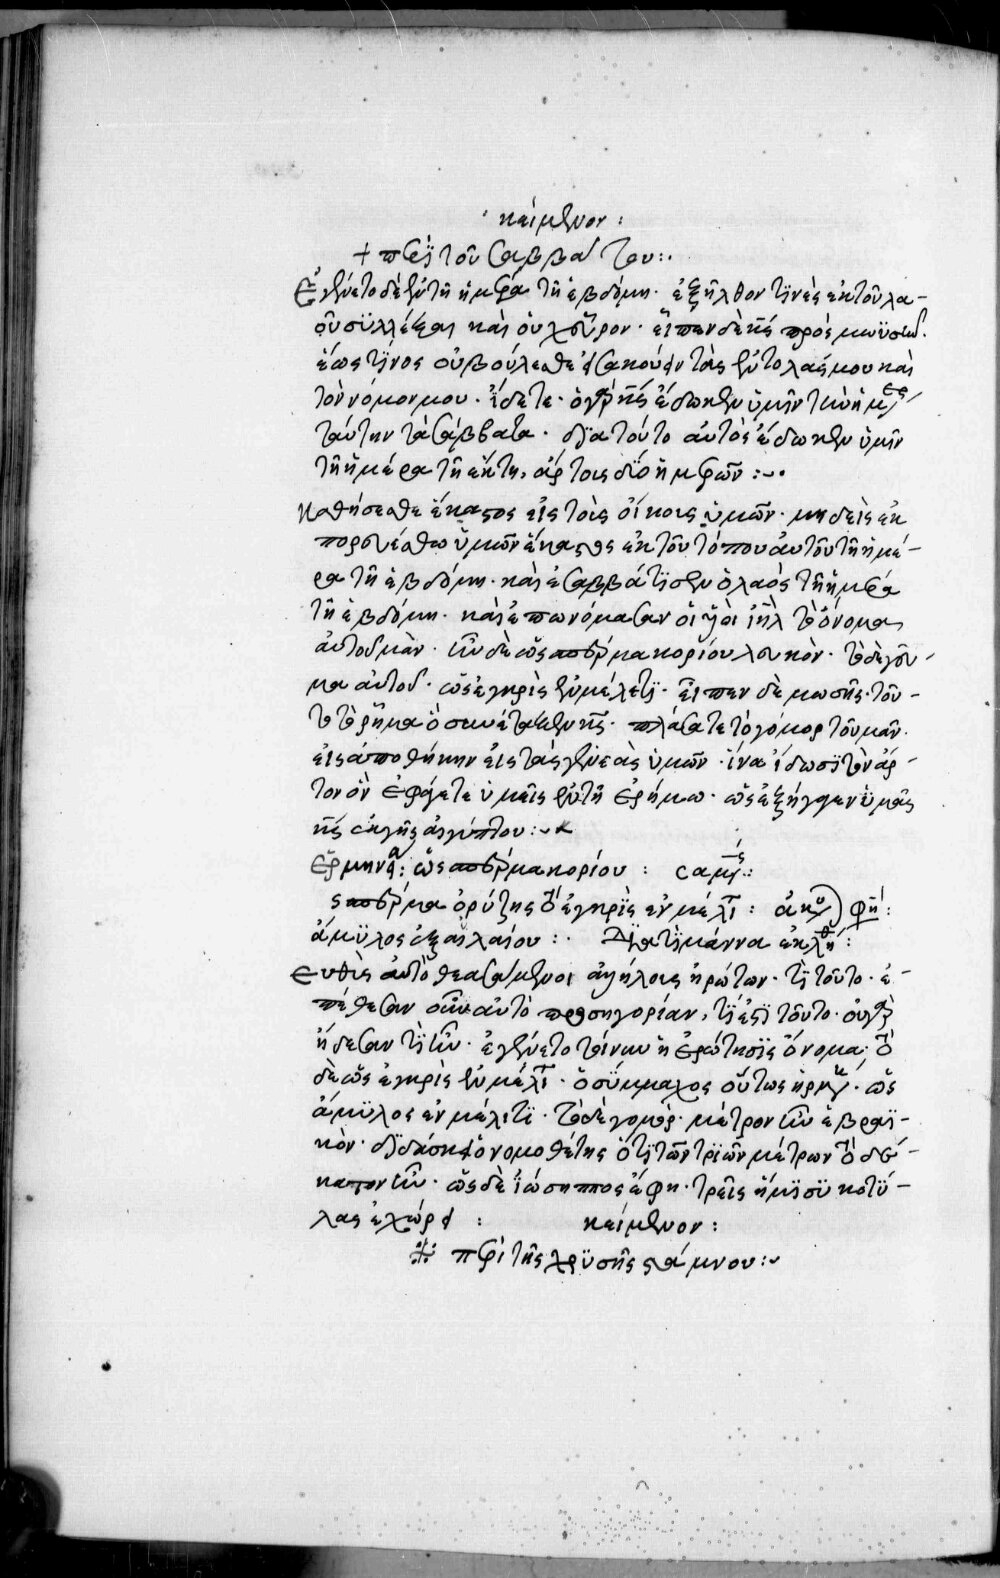 κείμενον :
+ περὶ τοῦ σαββάτου :.
Ἐγένετο δὲ ἐν τῇ ἡμέρα τῆ ἑβδόμη· ἐξῆλθον τϊνὲς ἐκ τοῦ λα-
οῦ συλλέξαι καὶ οὐχ εὗρον· εἶπεν δὲ κ̅ς̅ πρὸς μωϋσῆν·
ἕως τίνος οὐ βούλεσθε εἰσακούειν τὰς ἐντολάς μου καὶ
τὸν νόμον μου· ἴδετε· ὁ γὰρ κ̅ς̅ ἔδωκεν ὑμῖν τὴν ἡμέρ
ταύτην τὰ σάββατα· δϊα τοῦτο αὐτὸς ἔδωκεν ὑμῖν
τῆ ἡμέρα τῆ ἕκτη, ἄρτους δύο ἡμερῶν :~·
καθήσεσθε ἕκαστος εἰς τοὺς οἴκους ὑμῶν· μηδεὶς ἐκ
πορευέσθω ὑμῶν ἕκαστος ἐκ τοῦ τόπου αὐτοῦ τῆ ἡμέ-
ρα τῆ ἑβδόμη· καὶ ἐσαββάτϊσεν ὁ λαὸς τῆ ἡμέρα
τῆ ἑβδόμη· καὶ ἐπωνόμασαν οἱ υἱοὶ ι̅η̅λ̅ τὸ ὄνομα
αὐτοῦ μὰν· ἦν δὲ ὡς σπέρμα κορίου λευκὸν· τὸ δὲ γεῦ-
μα αὐτοῦ· ὡς ἐγκρὶς ἐν μέλιτϊ· εἶπεν δὲ μωσῆς· τοῦ-
το τὸ ρῆμα ὃ συνέταξεν κ̅ς̅· πλάσατε τὸ γόμορ τοῦ μὰν·
εἰς ἀποθήκην εἰς τὰς γενεὰς ὑμῶν· ἵνα ἴδωσϊ τὸν ἄρ-
τον ὃν ἐφάγετε ὑμεῖς ἐν τῆ ἐρήμω· ὡς ἐξήγαγεν ὑμᾶς
κ̅ς̅ ἐκ γῆς αἰγύπτου :~
ἑρμηνεία : ὡς σπέρμα κορίου : σαμ :
σπέρμα ὀρύζης τὸ ἐγκρὶς ἐν μέλιτι : ἀκύ) φη :
ἄμϋλος ἐξ ἐλαίου :· Διατὶ μάννα ἐκλήθη :
Εὐθὺς αὐτὸ θεασάμενοι ἀλλήλους ἠρώτων· τὶ τοῦτο· ἐ-
πέθεσαν οὖν αὐτὸ προσηγορίαν, τί ἐστϊ τοῦτο· οὐ γὰρ
ἤδεσαν τὶ ἦν· ἐγένετο τοίνυν ἡ ἐρώτησϊς ὄνομα· τὸ
δὲ ὡς ἐγκρὶς ἐν μέλιτι· ὁ σύμμαχος οὕτως ἡρμή· ὡς
ἄμϋλος ἐν μέλιτϊ· τὸ δὲ γομὸρ· μέτρον ἦν ἑβραϊ-
κὸν· διδάσκει ὁ νομοθέτης ὁτϊ τῶν τρϊῶν μέτρων τὸ δέ-
κατον ἦν· ὡς δὲ ϊώσηππος ἔφη· τρεῖς ἥμϊσϋ κοτύ-
λας ἐχώρει : κείμενον :
※ περὶ τῆς χρϋσῆς στάμνου :~